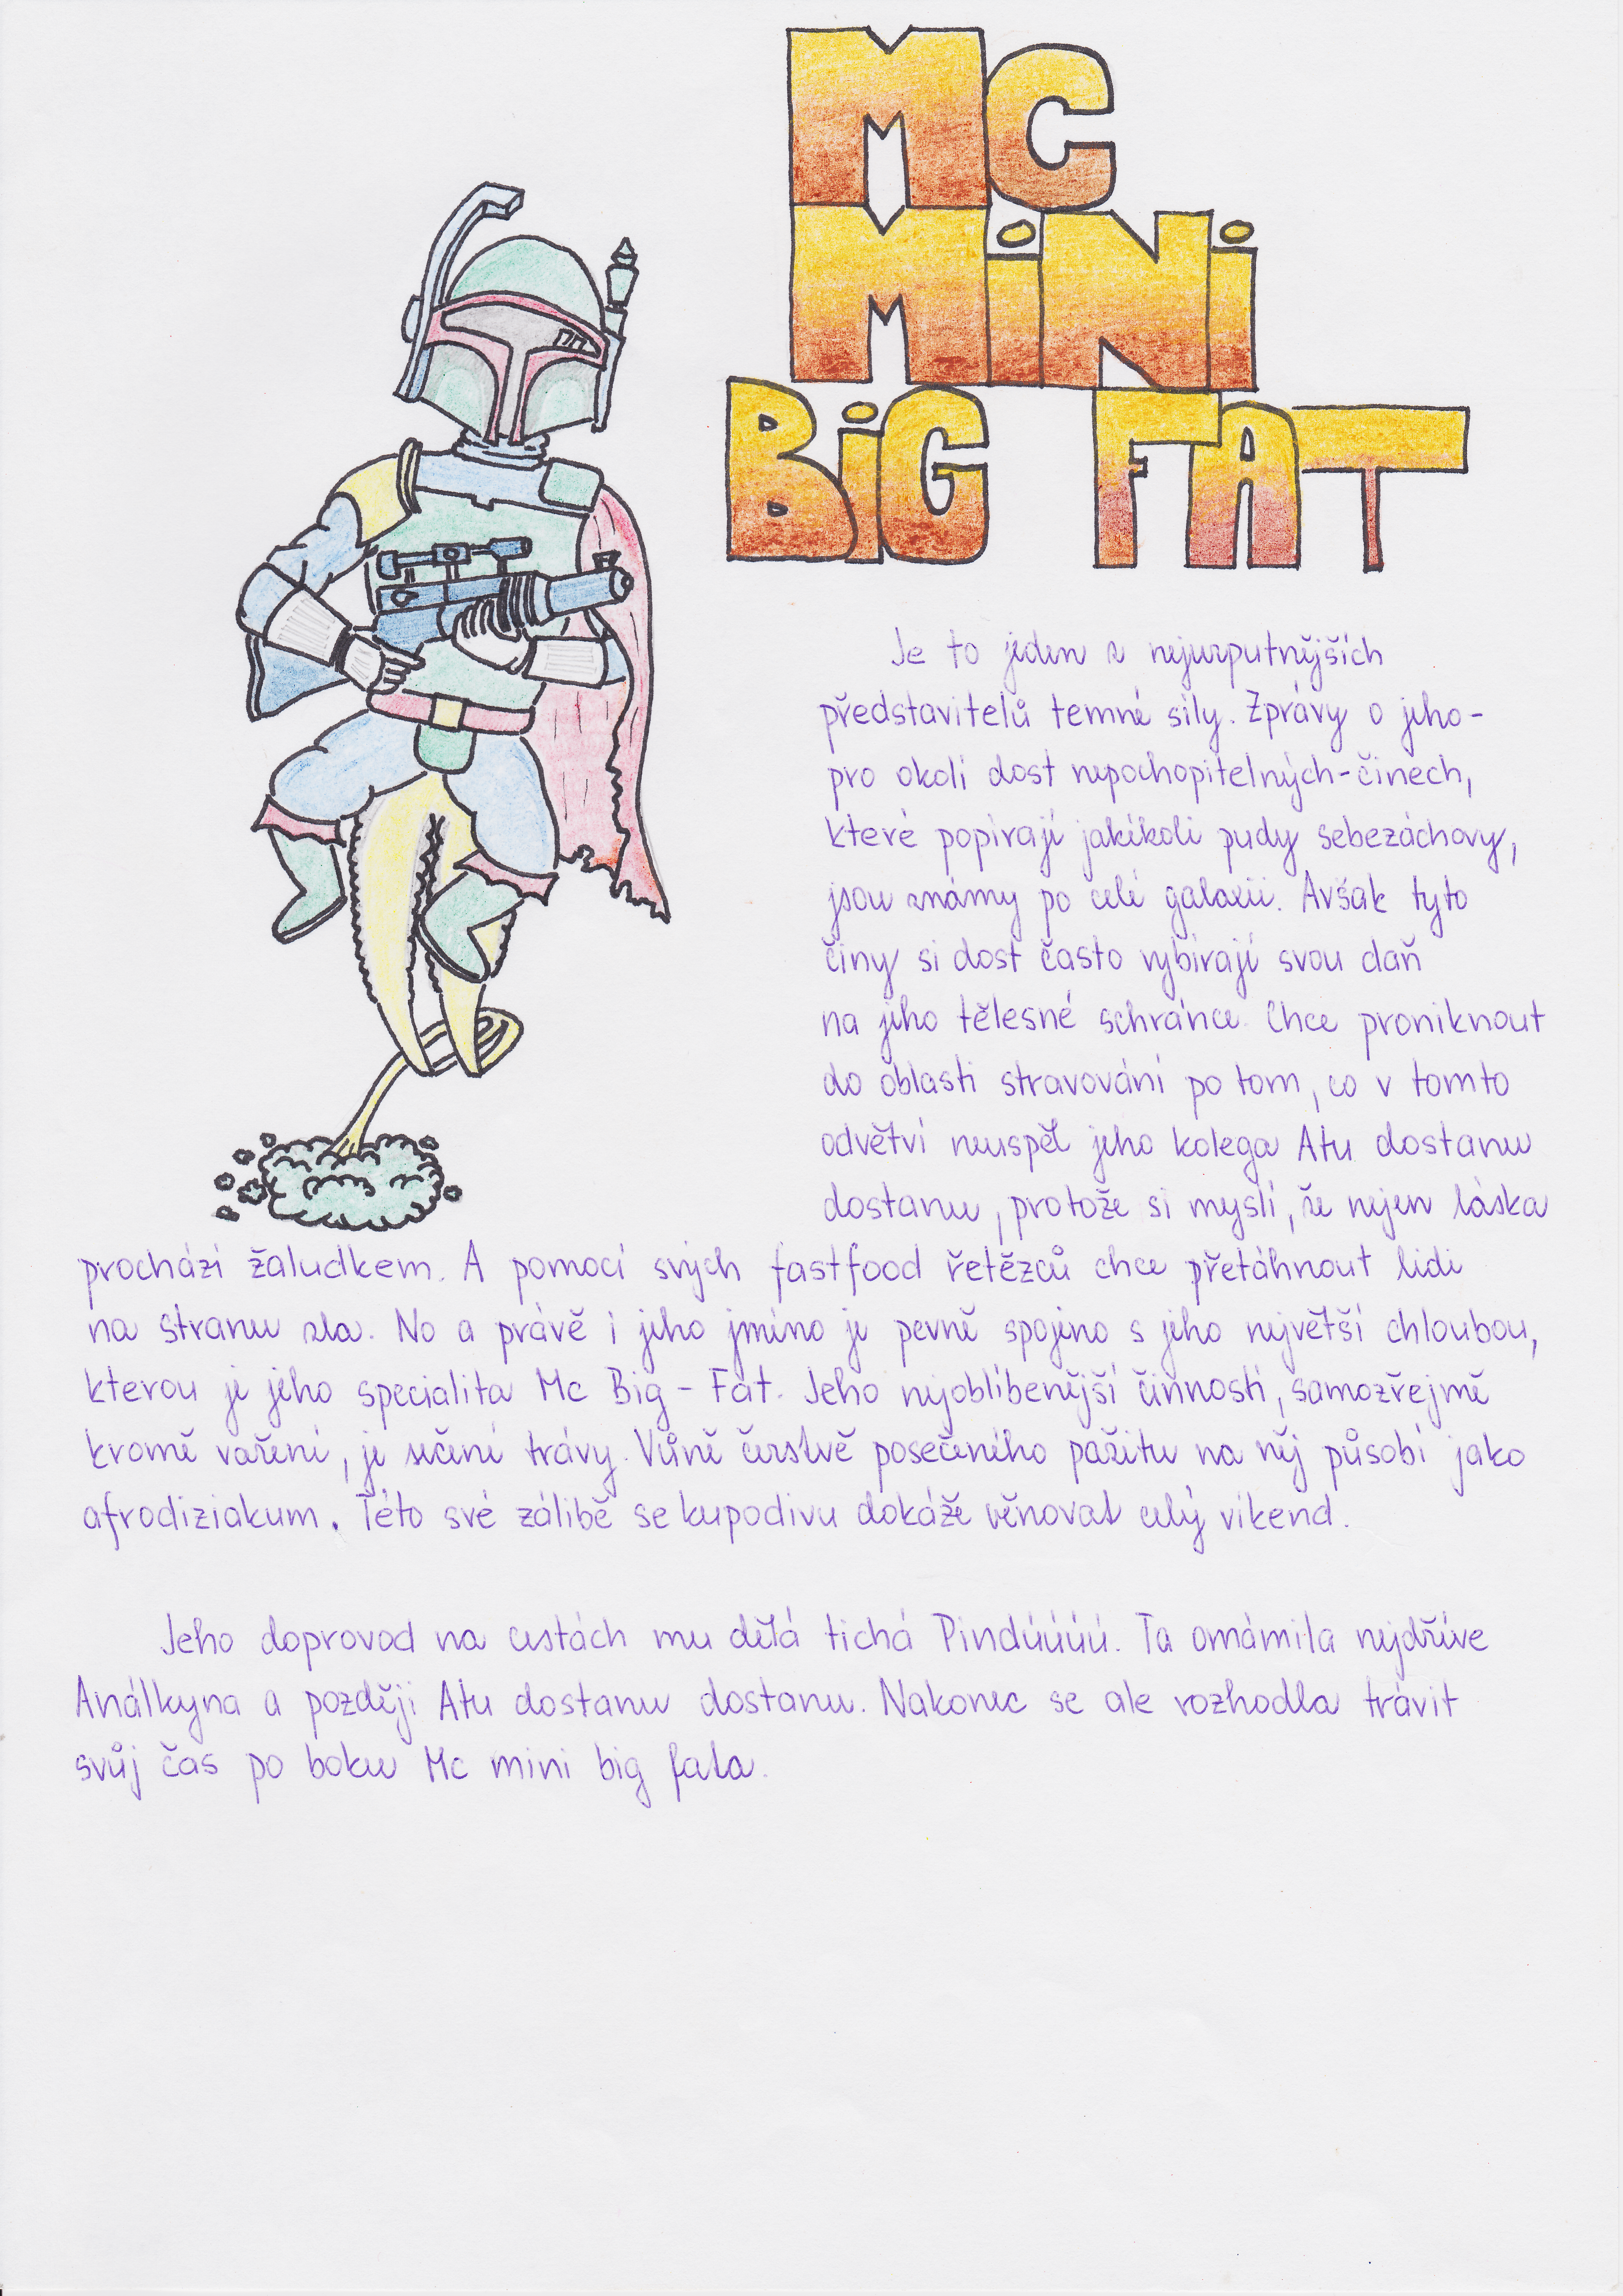 MC
MiNi
BiG FAT
Je to jeden z nejurputnějších
představitelů temné síly. Zprávy o jeho-
pro okolí dost nepochopitelných-činech,
které popírají jakékoli pudy sebezáchovy,
jsou známy po celé galaxii. Avšak tyto
činy si dost často vybírají svou daň
na jeho tělesné schránce. Chce proniknout
do oblasti stravování po tom, co v tomto
odvětví neuspěl jeho kolega Atu dostanu
dostanu, protože si myslí, že nejen láska
prochází žaludkem. A pomocí svých fastfood řetězců chce přetáhnout lidi
na stranu zla. No a právě i jeho jméno je pevně spojeno s jeho největší chloubou,
kterou je jeho specialita Mc Big - Fat. Jeho nejoblíbenější činností, samozřejmě
kromě vaření, je sečení trávy. Vůně čerstvě posečeného pažitu na něj působí jako
afrodiziakum. Této své zálibě se kupodivu dokáže věnovat celý víkend.
Jeho doprovod na cestách mu dělá tichá Pindúúúú. Ta omámila nejdříve
Análkyna a později Atu dostanu dostanu. Nakonec se ale rozhodla trávit
svůj čas po boku Mc mini big fata.